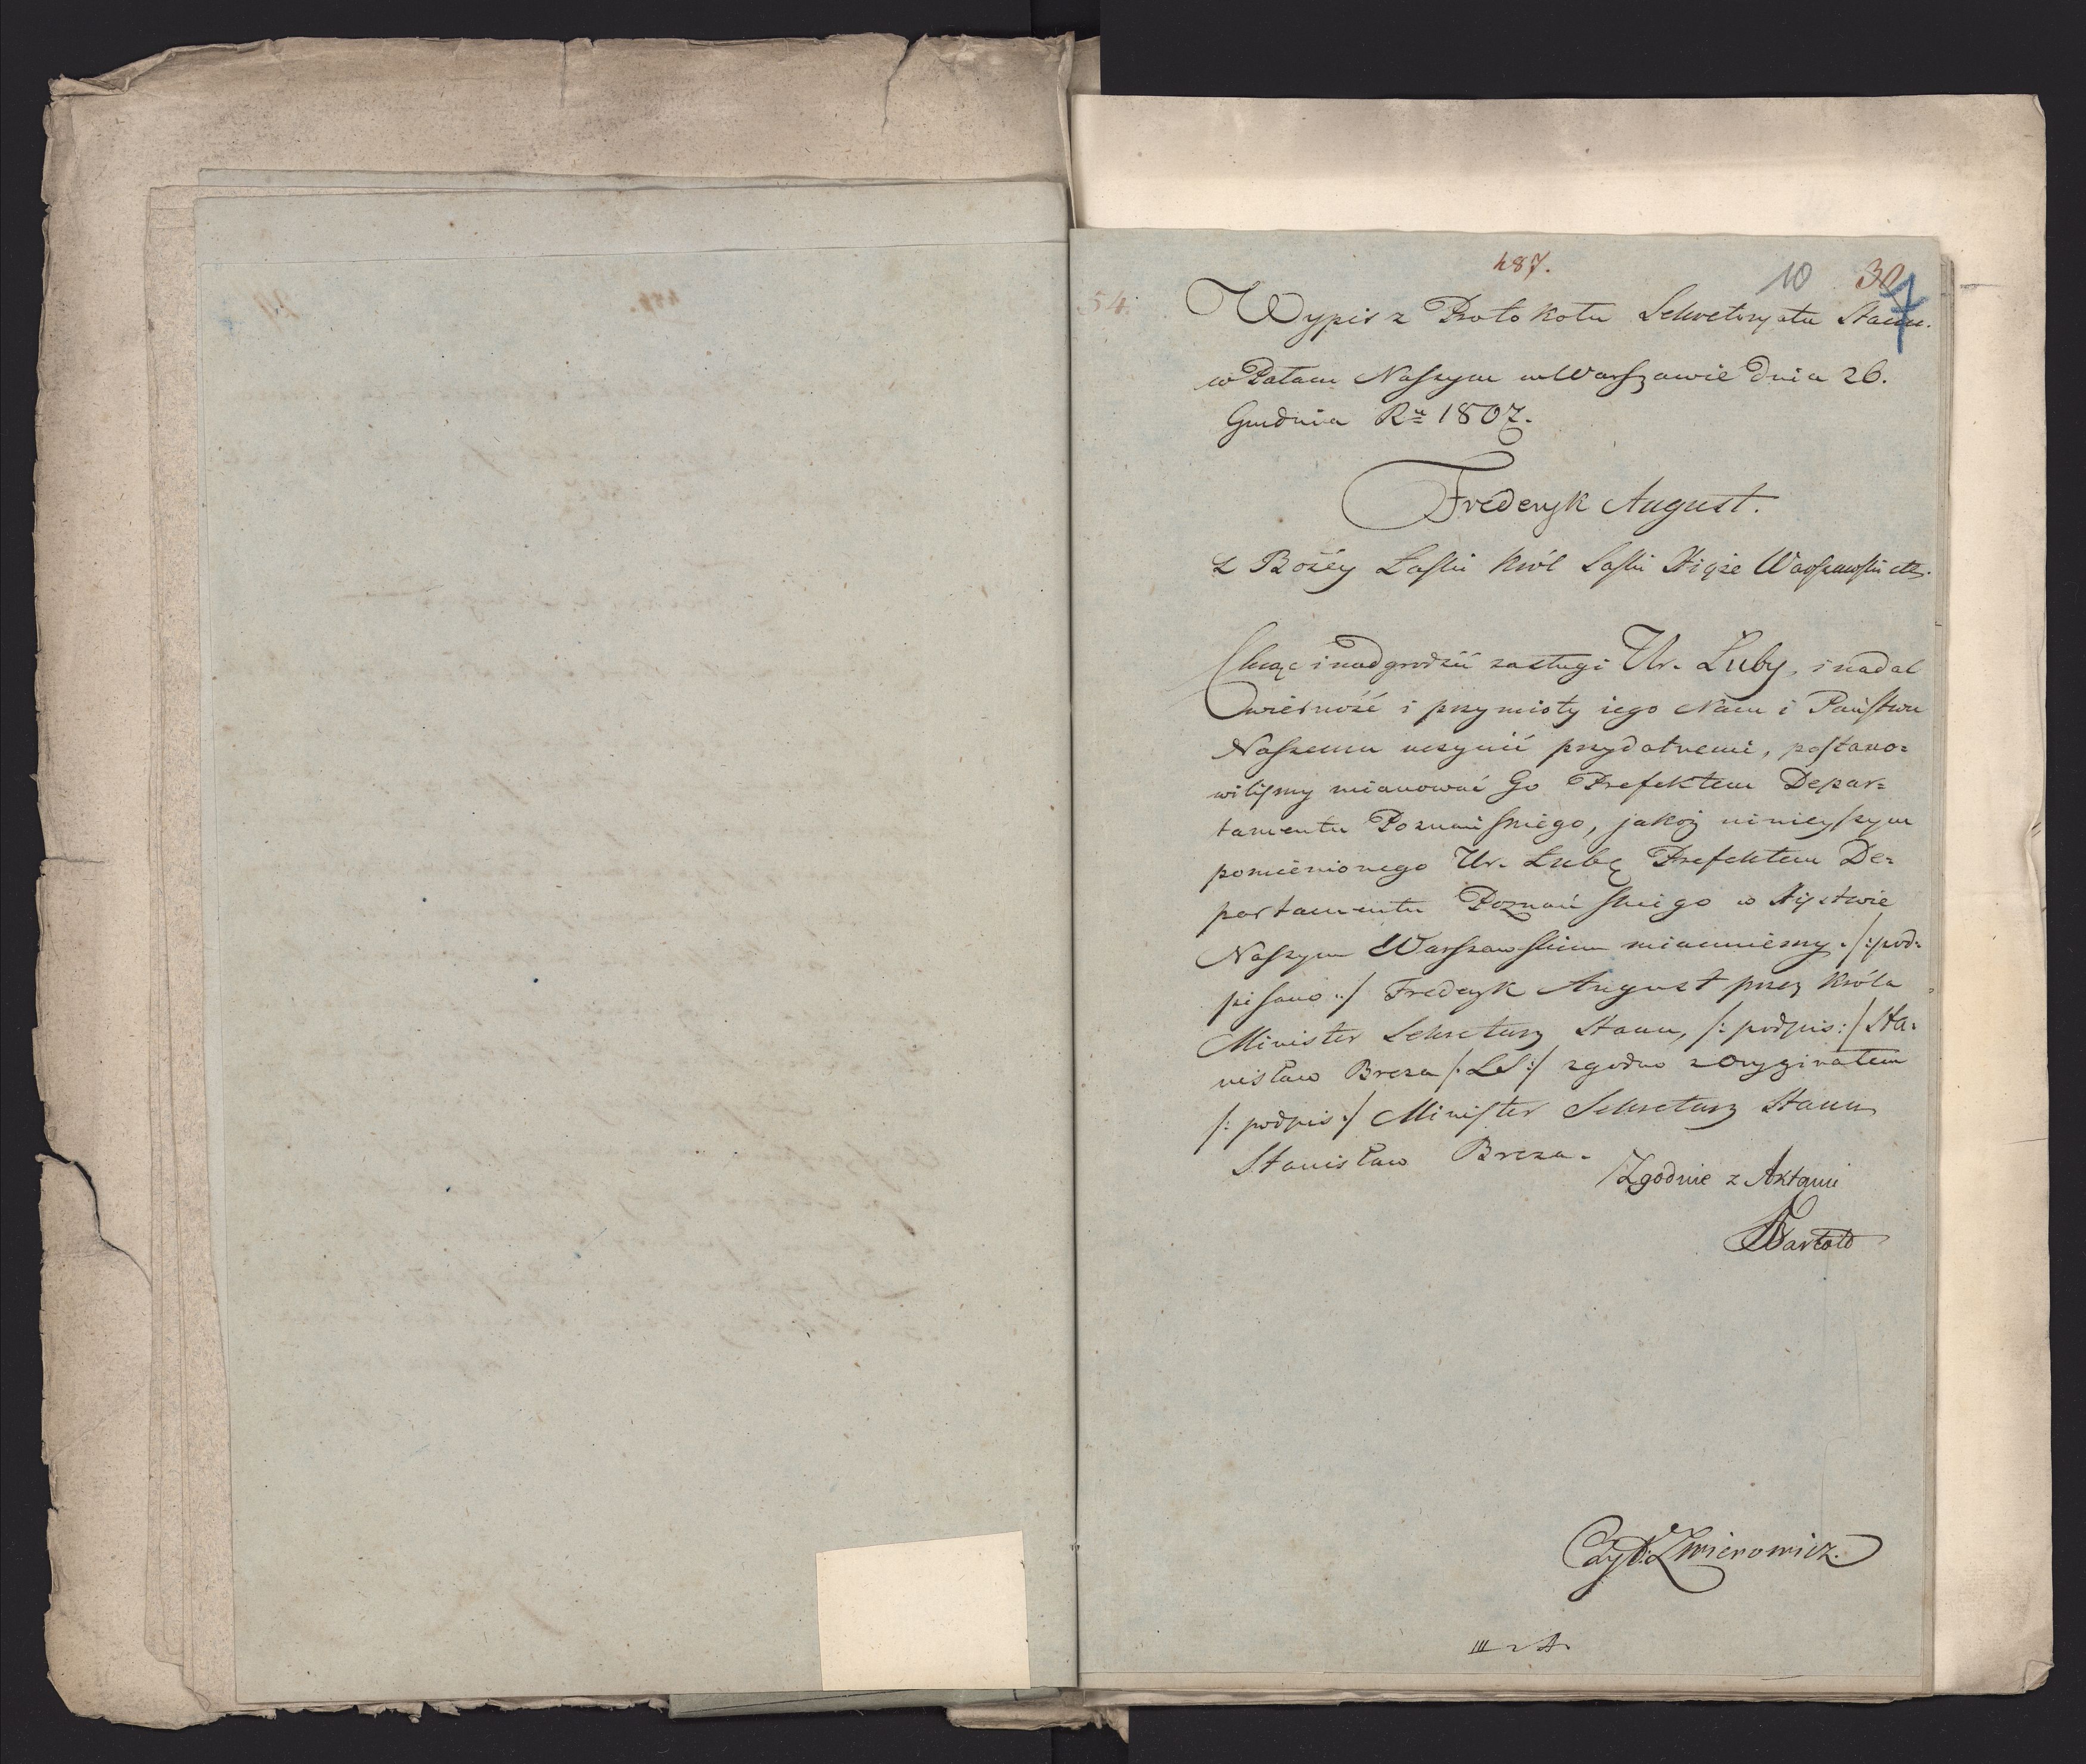 487.
10 30
7
54.
Wypis z Protokołu Sekretaryatu Stanu.
w Pałacu Naszym w Warszawie dnia 26.
Grudnia Ru 1807.
Frederyk August.
z Bożéy Łaski Król Saski Xiąże Warszawski etc.
Chcąc i nadgrodzić zasługi Ur. Łuby, i nadal
wierność i przymioty iego Nam i Państwu
Naszemu uczynić przydatnemi, postano=
wiliśmy mianować Go Prefektem Depar=
tamentu Poznańskiego, jakoż ninieyszym
pomienionego Ur. Łubę Prefektem De=
partamentu Poznańskiego w Xięstwie
Naszym Warszawskim mianuiemy. /: pod=
pisano :/ Frederyk August przez Króla
Minister Sekretarz Stanu, /: podpis :/ Sta=
nisław Breza /: LS :/ zgodno z Oryginałem
/: podpis :/ Minister Sekretarz Stanu
Stanisław Breza.
Zgodnie z Aktami
Czyt:
III